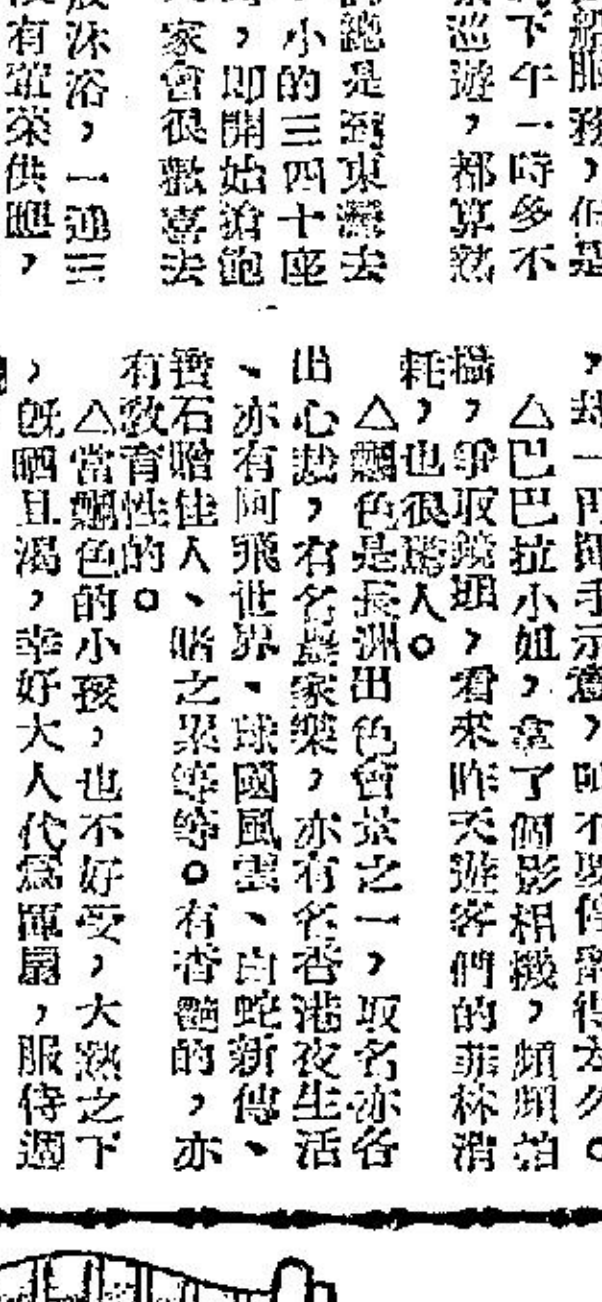 船服務，但是
下午一時多不
巡遊，都算熱
總是到東灣去
小的三四十座
，即開始搶飽
家會很歡喜去
沐浴，一連三
有齋菜供應，
，却一再揮手示意，叫不要停留得太久。
△巴巴拉小姐，拿了個影相機，頻頻拍
攝，爭取鏡頭，看來昨天遊客們的菲林消
耗，也很驚人。
△飄色是長洲出色會景之一，取名亦各
出心裁，有名農家樂，亦有名香港夜生活
、亦有阿飛世界、球國風雲、白蛇新傳、
寶石贈佳人、賭之果等等。有香艷的，亦
有敎育性的。
△當飄色的小孩，也不好受，大熱之下
，旣晒且渴，幸好大人代爲揮扇，服侍週